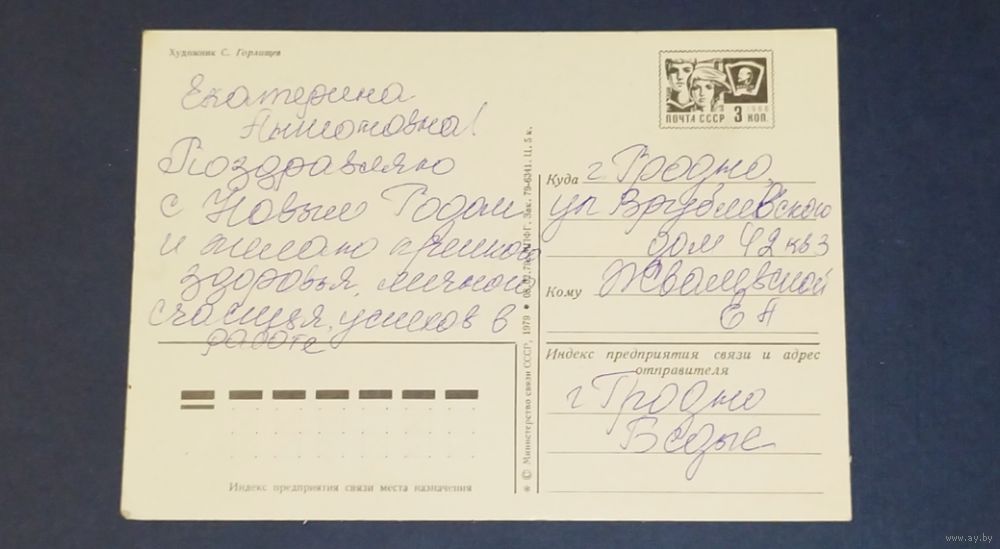 Художник С. Горлищев
Екатерина
Поздравляю
с Новым Годом
и желаю крепкого
здоровья, личного
счастья, успехов в
работе
ПОЧТА СССР 3 КОП.
1966
Куда г Гродно
ул Врублевского
дом 42 кв 3
Кому Жвалевской
Е
Индекс предприятия связи и адрес
отправителя
г Гродно
© Министерство связи СССР, 1979
Зак. 79-6341. Ц. 5 к.
Индекс предприятия связи места назначения
www.ay.by